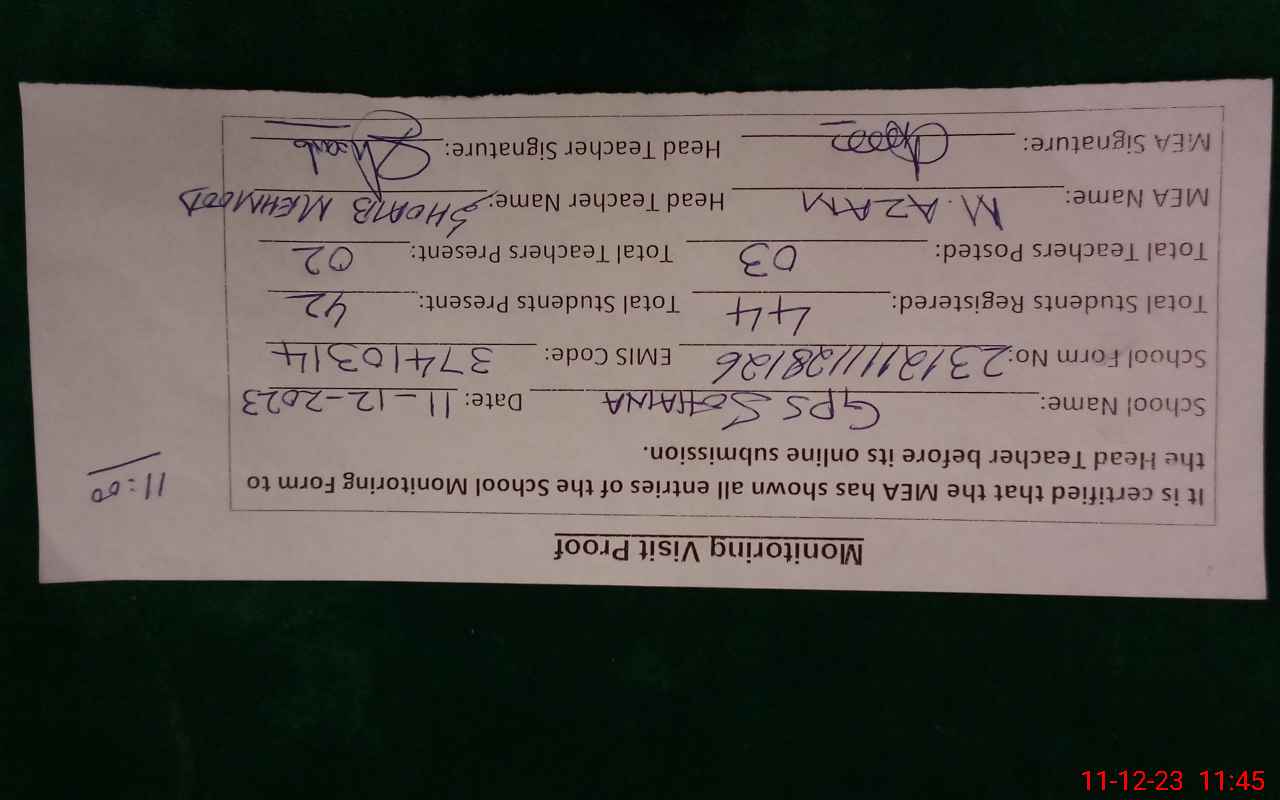 Monitoring Visit Proof
It is certified that the MEA has shown all entries of the School Monitoring Form to
the Head Teacher before its online submission.
11:00
School Name: GPS SOHAINA Date: 11-12-2023
School Form No: 2312111128126 EMIS Code: 37410314
Total Students Registered: 44 Total Students Present: 42
Total Teachers Posted: 03 Total Teachers Present: 02
MEA Name: M. AZAM Head Teacher Name: SHOAIB MEHMOOD
MEA Signature: Head Teacher Signature:
11-12-23 11:45